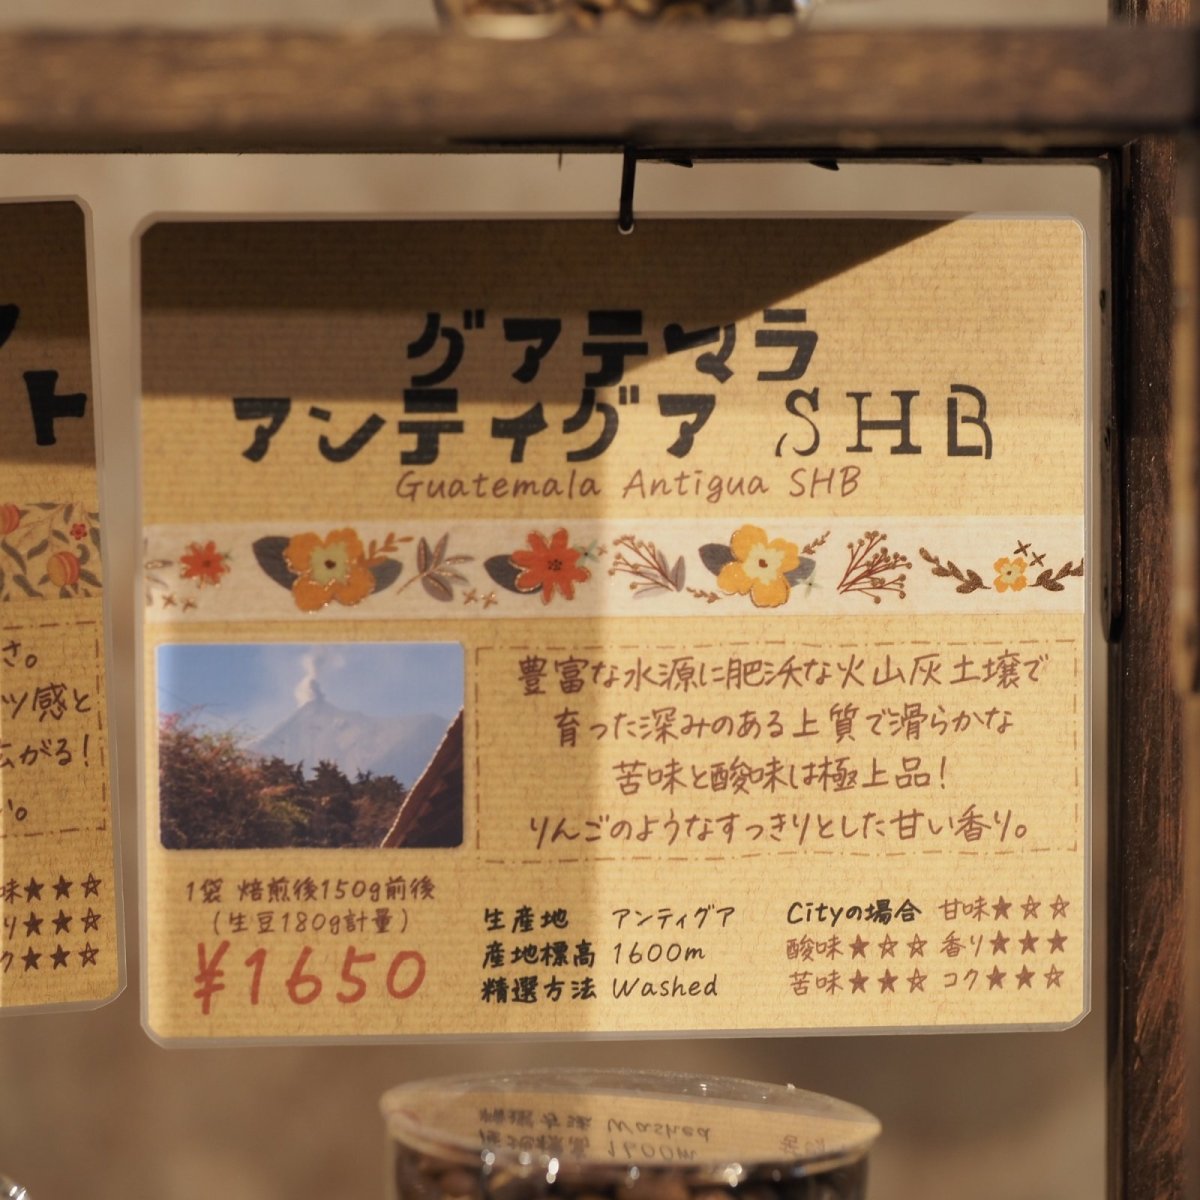 グアテマラ
アンティグア SHB
Guatemala Antigua SHB
豊富な水源に肥沃な火山灰土壌で
育った深みのある上質で滑らかな
苦味と酸味は極上品!
りんごのようなすっきりとした甘い香り。
1袋 焙煎後150g前後
(生豆180g計量)
¥1650
生産地 アンティグア
産地標高 1600m
精選方法 Washed
Cityの場合 甘味★☆☆
酸味★☆☆ 香り★★★
苦味★★☆ コク★★☆
ト
さ。
ツ感と
広がる!
い。
味★★☆
り★☆☆
ク★★☆